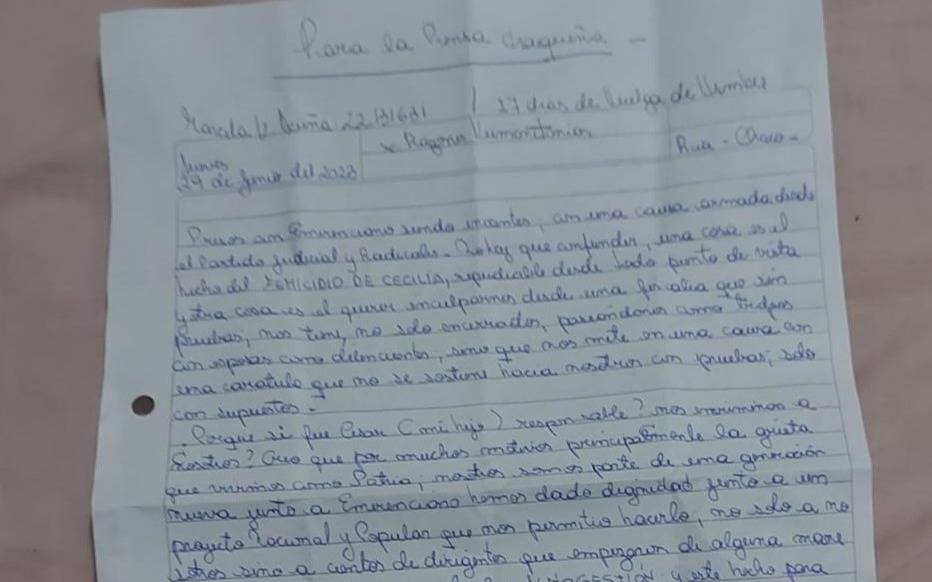 Para la Prensa Chaqueña -
Marcela V. Acuña 22131631 / 17 días de huelga de Hambre
x Razones Humanitarias
Rcia - Chaco -
Jueves
29 de Junio del 2023
Presos con Emerenciano siendo inocentes, con una causa armada desde
el Partido Judicial y Radicales. No hay que confundir, una cosa es el
hecho del FEMICIDIO DE CECILIA, repudiable desde todo punto de vista
y otra cosa es el querer inculparnos desde una fiscalia que sin
pruebas, nos tiene, no solo encerrados, paseandonos como trofeos
con esposas como delincuentes, sino que nos mete en una causa con
una caratula que no se sostiene hacia nosotros con pruebas, solo
con supuestos.
. Porque si fue Cesar (mi hijo) responsable? nos incriminan a
nosotros? Creo que por muchos motivos principalmente la grieta
que vivimos como Patria; nosotros somos parte de una generación
nueva junto a Emerenciano hemos dado dignidad junto a un
proyecto Nacional y Popular que nos permitio hacerlo, no solo a no
sotros sino a cientos de dirigentes que empezaron de alguna mane
GESTIÓN y este hecho para